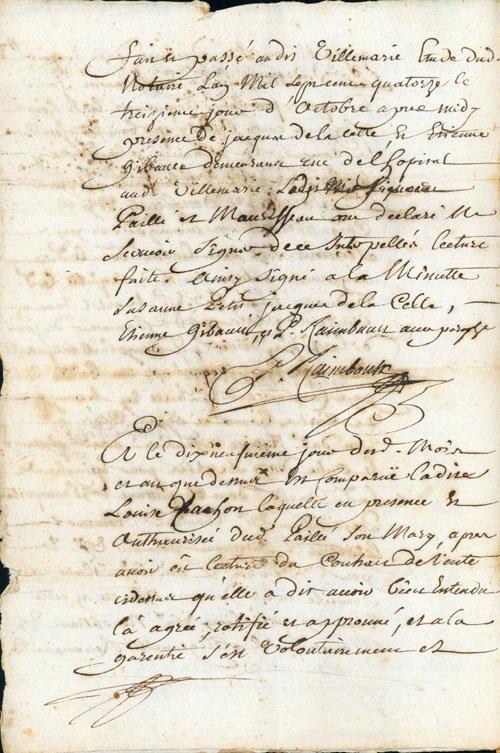 fait et passé aud. Villemarie Etude dud.
Notaire L'an Mil sept cens quatorze le
treizieme jour d'Octobre apres midy
presence De jacques de la Celle et Etienne
Gibault demeurans rue de l'hopital
aud. Villemarie
Paillé et ont declaré Ne
Scavoir signer de ce Interpellés lecture
faite. signé a la Minutte
Susanne Petit, jacques de la Celle,
Etienne Gibault, et P. Raimbault avec paraphe
P. Raimbault
Et le dixneufvieme jour dud. Mois
et an que dessus est Comparüe ladite
Louise laquelle en presence et
Authaurisée dud. Paillé son Mary, apres
avoir eü lecture du Contract de Vente
cydessus qu'elle a dit avoir bien Entendu
la agreé, ratifié et approuvé, et a la
garentie s'est Volontairement et